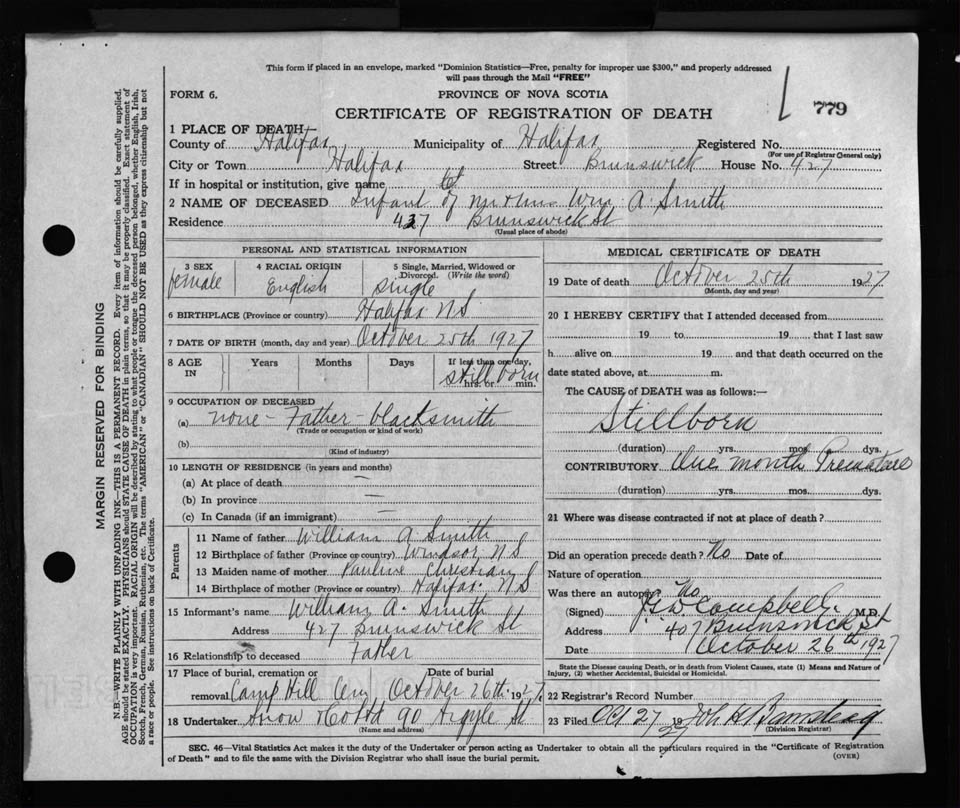 This form if placed in an envelope, marked "Dominion Statistics—Free, penalty for improper use $300," and properly addressed
will pass through the Mail "FREE"
FORM 6.
PROVINCE OF NOVA SCOTIA
779
CERTIFICATE OF REGISTRATION OF DEATH
1 PLACE OF DEATH
County of Halifax Municipality of Halifax Registered No.
(For use of Registrar General only)
City or Town Halifax Street Brunswick House No. 427
If in hospital or institution, give name
2 NAME OF DECEASED Infant of Mr & Mrs Wm A. Smith
Residence 427 Brunswick St
(Usual place of abode)
PERSONAL AND STATISTICAL INFORMATION
3 SEX 4 RACIAL ORIGIN 5 Single, Married, Widowed or
Divorced. (Write the word)
female English Single
6 BIRTHPLACE (Province or country) Halifax N S
7 DATE OF BIRTH (month, day and year) October 25th 1927
8 AGE IN Years Months Days If less than one day,
hrs. or min.
stillborn
9 OCCUPATION OF DECEASED
(a) none - Father - blacksmith
(Trade or occupation or kind of work)
(b)
(Kind of industry)
10 LENGTH OF RESIDENCE (in years and months)
(a) At place of death —
(b) In province —
(c) In Canada (if an immigrant) —
Parents
11 Name of father William A Smith
12 Birthplace of father (Province or country) Windsor, N S
13 Maiden name of mother Pauline Christian
14 Birthplace of mother (Province or country) Halifax N S
15 Informant's name William A. Smith
Address 427 Brunswick St
16 Relationship to deceased Father
17 Place of burial, cremation or Date of burial
removal Camp Hill Cemy October 26th 1927
18 Undertaker Snow & Co Ltd 90 Argyle St
(Name and address)
MEDICAL CERTIFICATE OF DEATH
19 Date of death October 25th 1927
(Month, day and year)
20 I HEREBY CERTIFY that I attended deceased from
19 to 19 that I last saw
h alive on 19 and that death occurred on the
date stated above, at m.
The CAUSE of DEATH was as follows:—
Stillborn
(duration) yrs. mos. dys.
CONTRIBUTORY One month Premature
(duration) yrs. mos. dys.
21 Where was disease contracted if not at place of death?
Did an operation precede death? No Date of
Nature of operation
Was there an autopsy? No
(Signed) Campbell M.D.
Address 407 Brunswick St
Date October 26th 1927
State the Disease causing Death, or in death from Violent Causes, state (1) Means and Nature of
Injury, (2) whether Accidental, Suicidal or Homicidal.
22 Registrar's Record Number
23 Filed Oct 27 1927
(Division Registrar)
SEC. 46—Vital Statistics Act makes it the duty of the Undertaker or person acting as Undertaker to obtain all the particulars required in the "Certificate of Registration
of Death" and to file the same with the Division Registrar who shall issue the burial permit.
(OVER)
MARGIN RESERVED FOR BINDING
N.B.—WRITE PLAINLY WITH UNFADING INK—THIS IS A PERMANENT RECORD. Every item of information should be carefully supplied.
AGE should be stated EXACTLY. PHYSICIANS should STATE CAUSE OF DEATH in plain terms, so that it may be properly classified. Exact statement of
OCCUPATION is very important. RACIAL ORIGIN will be described by stating to what people or tongue the deceased person belonged, whether English, Irish,
Scotch, French, German, Russian, Ruthenian, etc. The terms "AMERICAN" or "CANADIAN" SHOULD NOT BE USED as they express citizenship but not
a race or people. See instructions on back of Certificate.